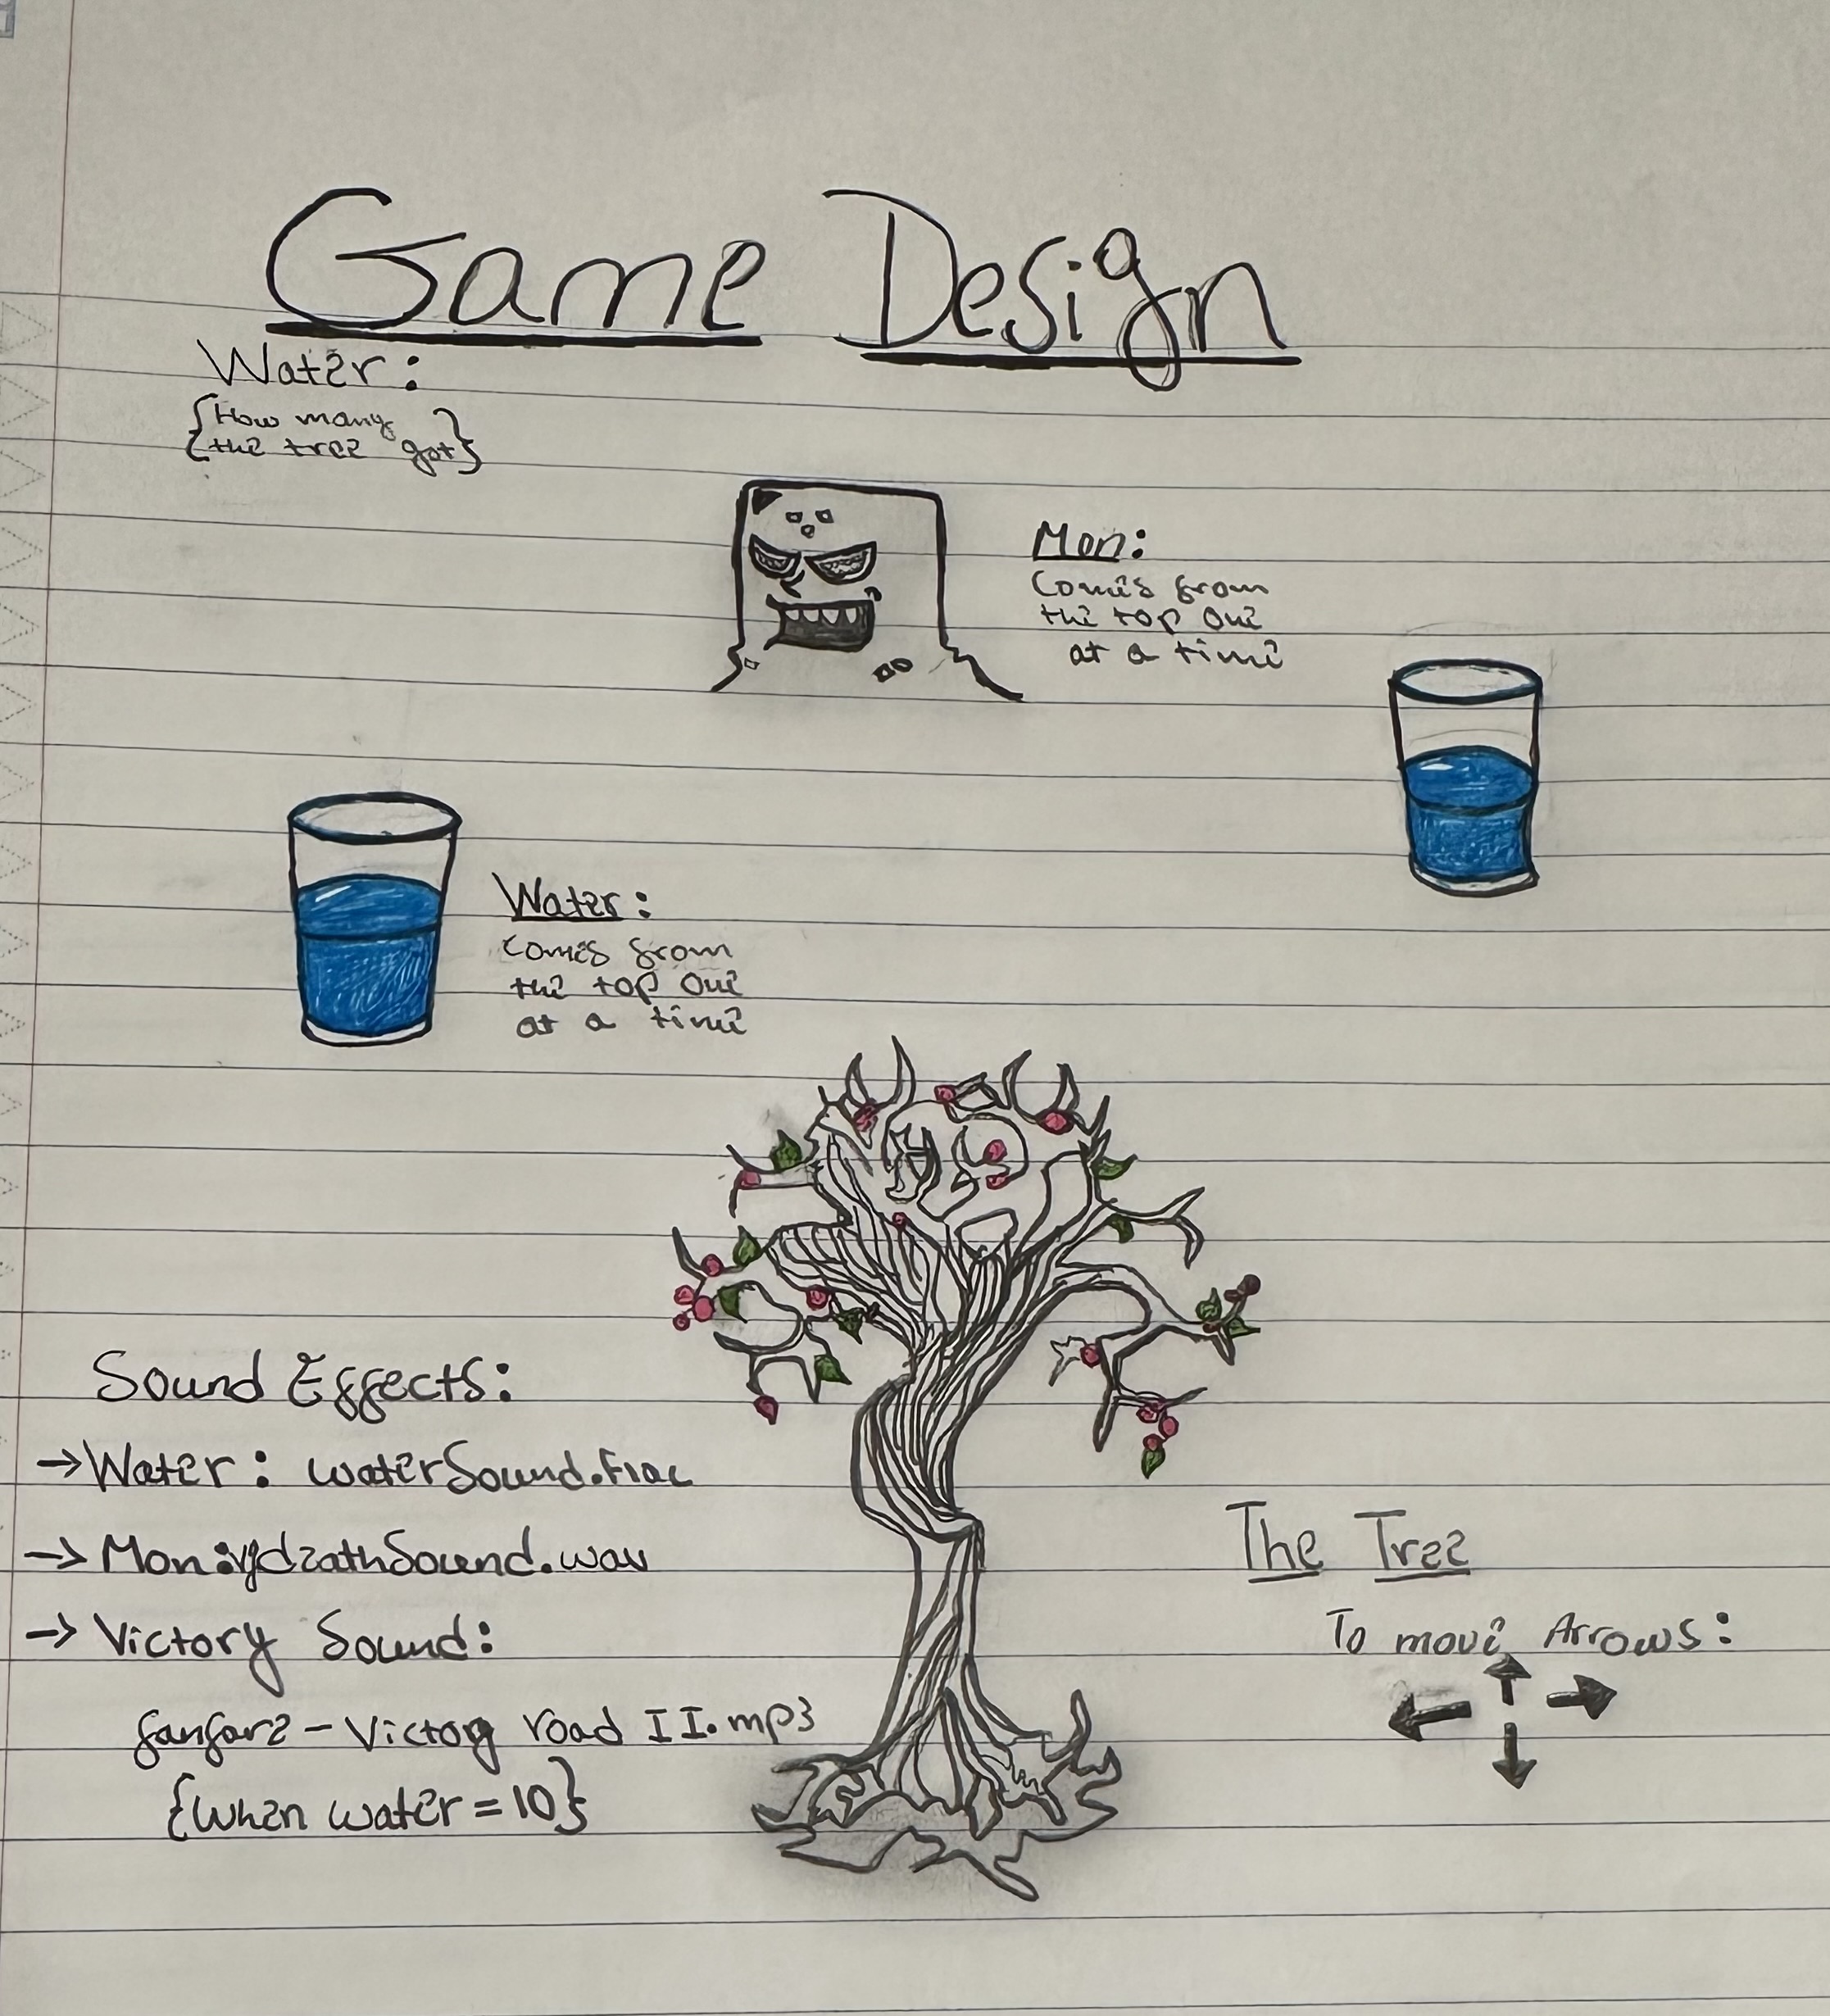 Game Design
Water:
{How many
the tree got}
Mon:
Comes from
the top one
at a time
Water:
Comes from
the top one
at a time
Sound Effects:
→ Water: waterSound.flac
→ Mon: Sound.wav
→ Victory Sound:
fanfare - Victory road II.mp3
{when water = 10}
The Tree
To move Arrows:
← ↑ → ↓